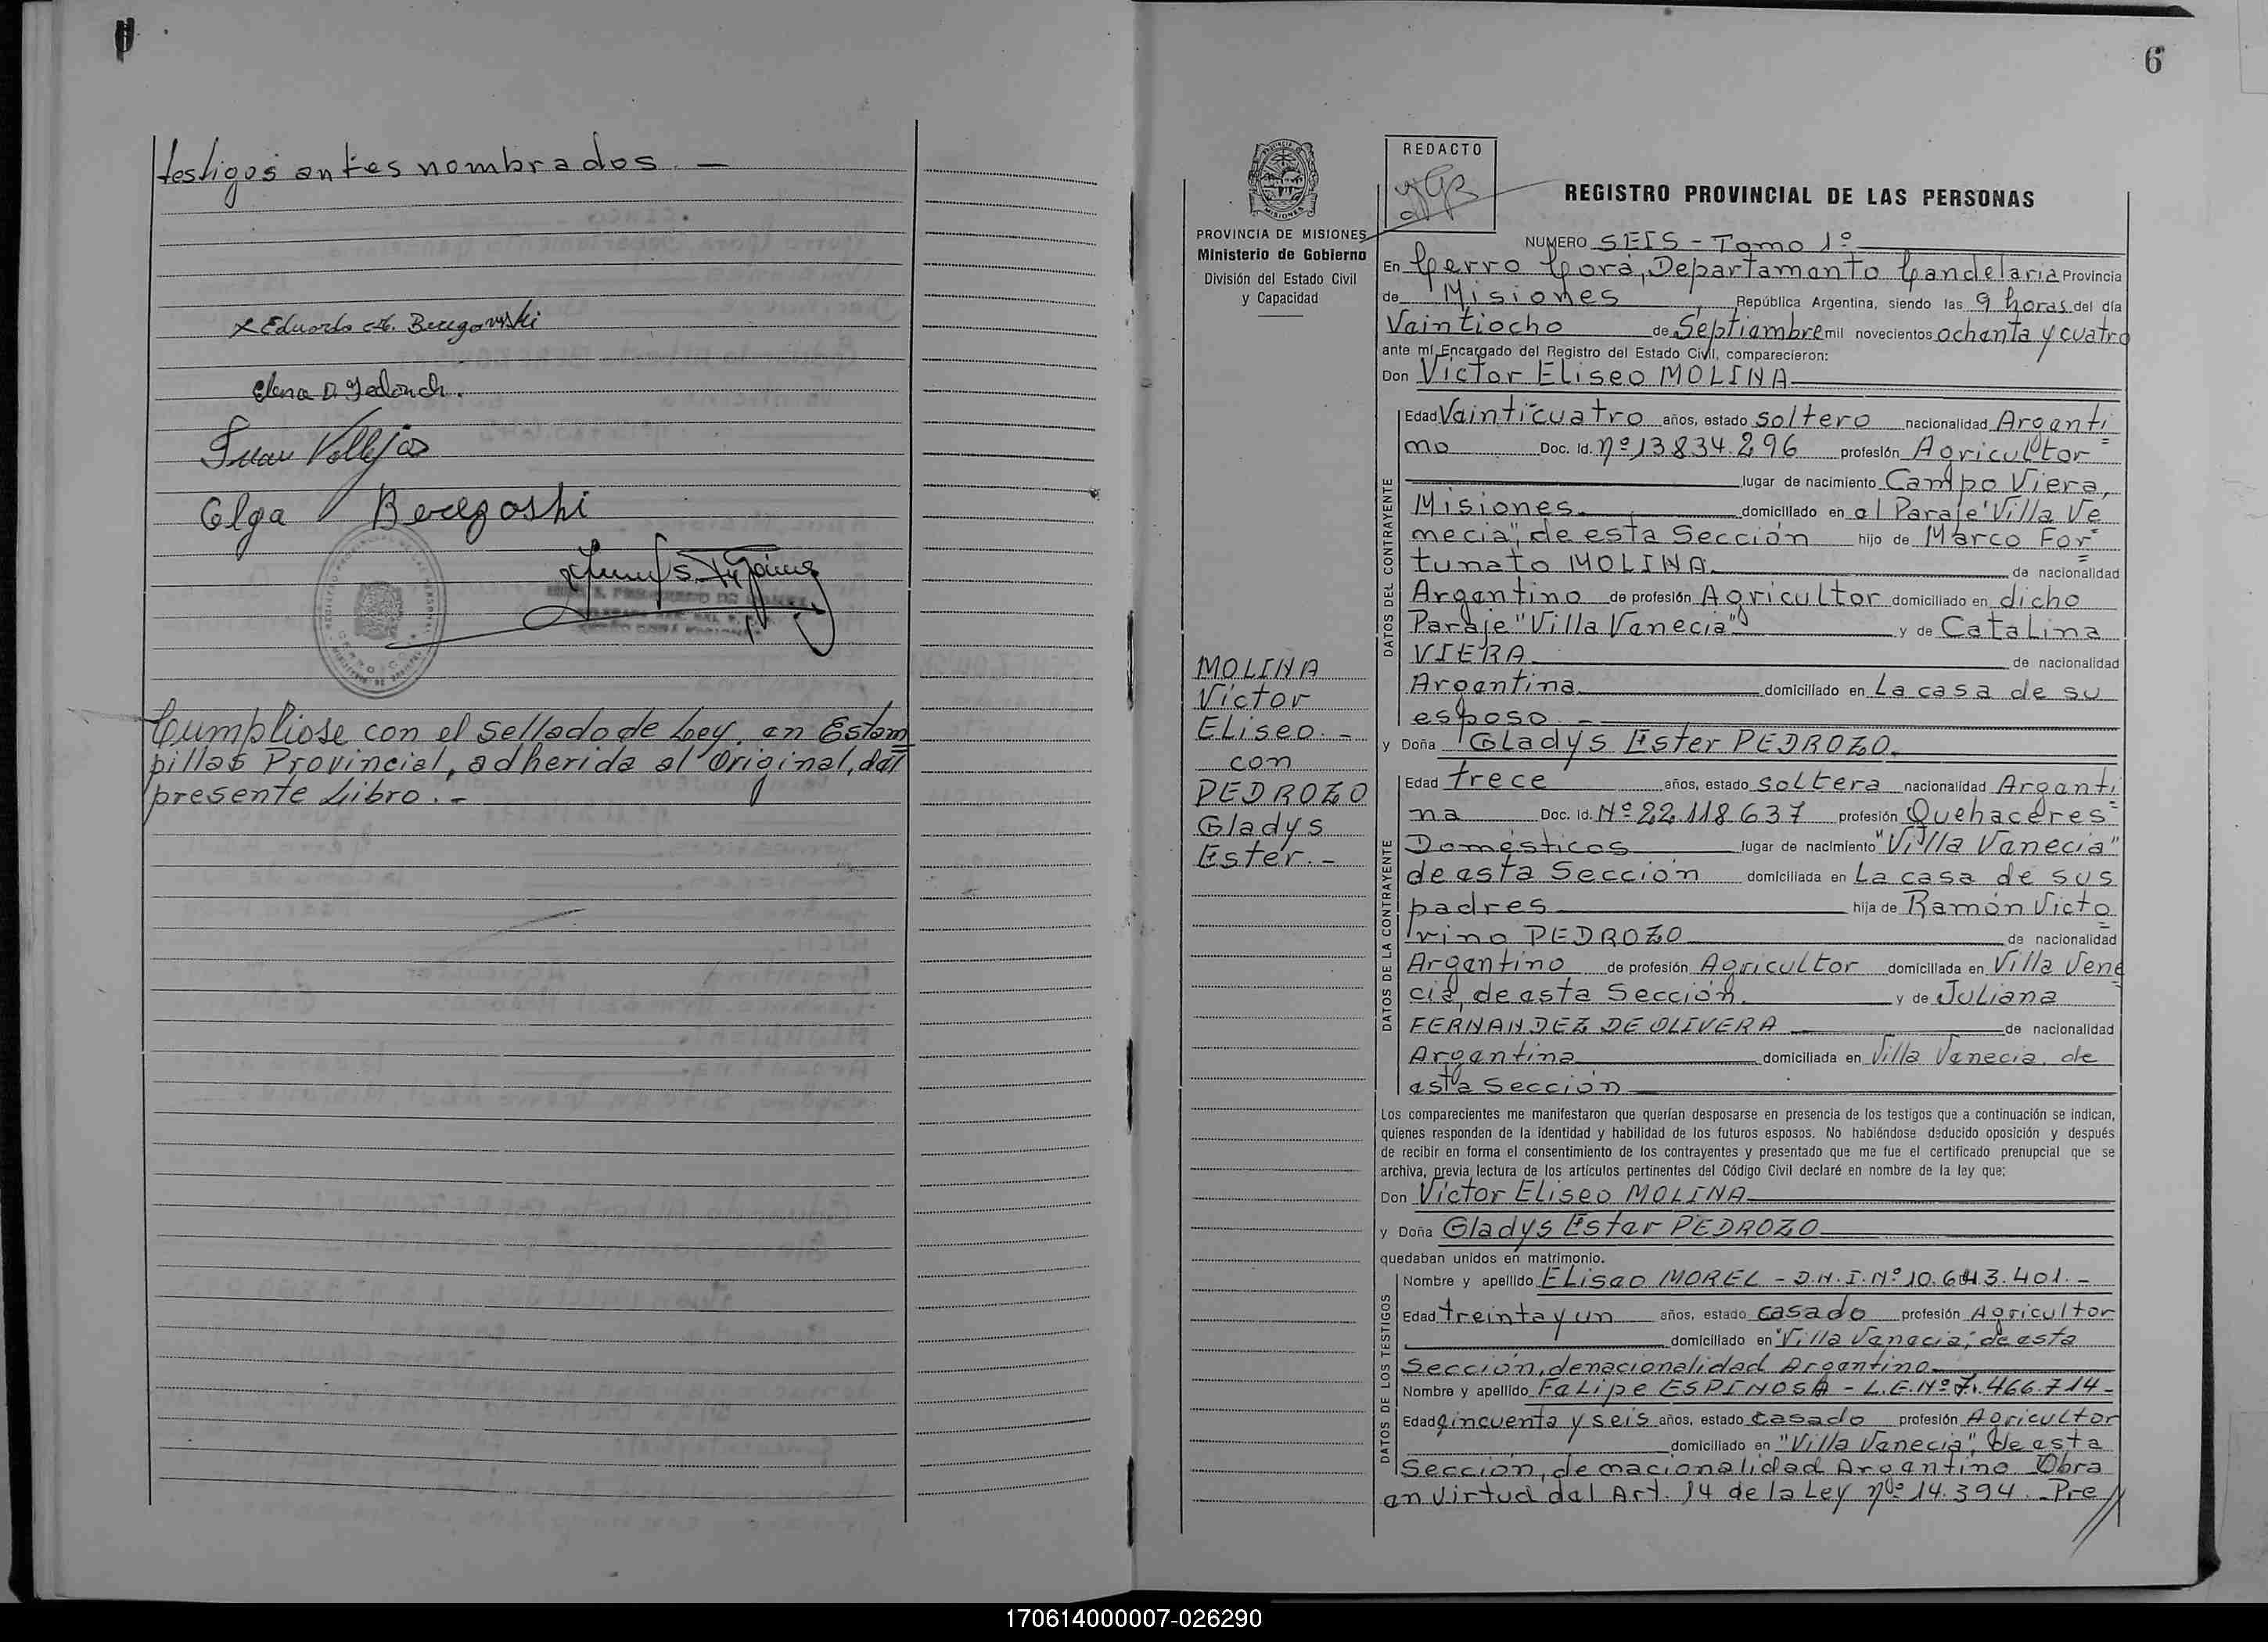 testigos antes nombrados. —
x Eduardo A. Beregovski
Elena D. Fedonch.
Juan Vallejos
Olga Beregoski
Cumpliose con el sellado de Ley, en Estam
pillas Provincial, adherida al Original, del
presente Libro. -
6
PROVINCIA DE MISIONES
Ministerio de Gobierno
División del Estado Civil
y Capacidad
REDACTO
REGISTRO PROVINCIAL DE LAS PERSONAS
NUMERO SEIS - Tomo 1º
En Cerro Corá, Departamento Candelaria Provincia
de Misiones República Argentina, siendo las 9 horas del día
Veintiocho de Septiembre mil novecientos ochenta y cuatro
ante mí Encargado del Registro del Estado Civil, comparecieron:
Don Víctor Eliseo MOLINA
DATOS DEL CONTRAYENTE
Edad Veinticuatro años, estado soltero nacionalidad Argenti=
no Doc. Id. Nº 13834.296 profesión Agricultor
lugar de nacimiento Campo Viera,
Misiones. domiciliado en el Paraje "Villa Ve
necia", de esta Sección hijo de Marco For=
tunato MOLINA. de nacionalidad
Argentino de profesión Agricultor domiciliado en dicho
Paraje "Villa Venecia" y de Catalina
VIERA de nacionalidad
Argentina domiciliado en La casa de su
esposo. -
MOLINA
Víctor
Eliseo. -
con
PEDROZO
Gladys
Ester. -
y Doña Gladys Ester PEDROZO.
DATOS DE LA CONTRAYENTE
Edad trece años, estado soltera nacionalidad Argenti=
na Doc. Id. Nº 22.118.637 profesión Quehaceres
Domésticos lugar de nacimiento "Villa Venecia"
de esta Sección domiciliada en La casa de sus
padres hija de Ramón Victo=
rino PEDROZO de nacionalidad
Argentino de profesión Agricultor domiciliada en Villa Vene
cia, de esta Sección. y de Juliana
FERNANDEZ DE OLIVERA de nacionalidad
Argentina domiciliada en Villa Venecia, de
esta Sección
Los comparecientes me manifestaron que querían desposarse en presencia de los testigos que a continuación se indican,
quienes responden de la identidad y habilidad de los futuros esposos. No habiéndose deducido oposición y después
de recibir en forma el consentimiento de los contrayentes y presentado que me fue el certificado prenupcial que se
archiva, previa lectura de los artículos pertinentes del Código Civil declaré en nombre de la ley que:
Don Víctor Eliseo MOLINA
y Doña Gladys Ester PEDROZO
quedaban unidos en matrimonio.
DATOS DE LOS TESTIGOS
Nombre y apellido Eliseo MOREL - D.N.I. Nº 10.643.401. -
Edad treinta y un años, estado casado profesión Agricultor
domiciliado en "Villa Venecia", de esta
Sección, de nacionalidad Argentino.
Nombre y apellido Felipe ESPINOSA - L.E. Nº 7.466.714 -
Edad cincuenta y seis años, estado casado profesión Agricultor
domiciliado en "Villa Venecia", de esta
Sección, de nacionalidad Argentino. Obra
en virtud del Art. 14 de la Ley Nº 14.394. - Pre//
170614000007-026290